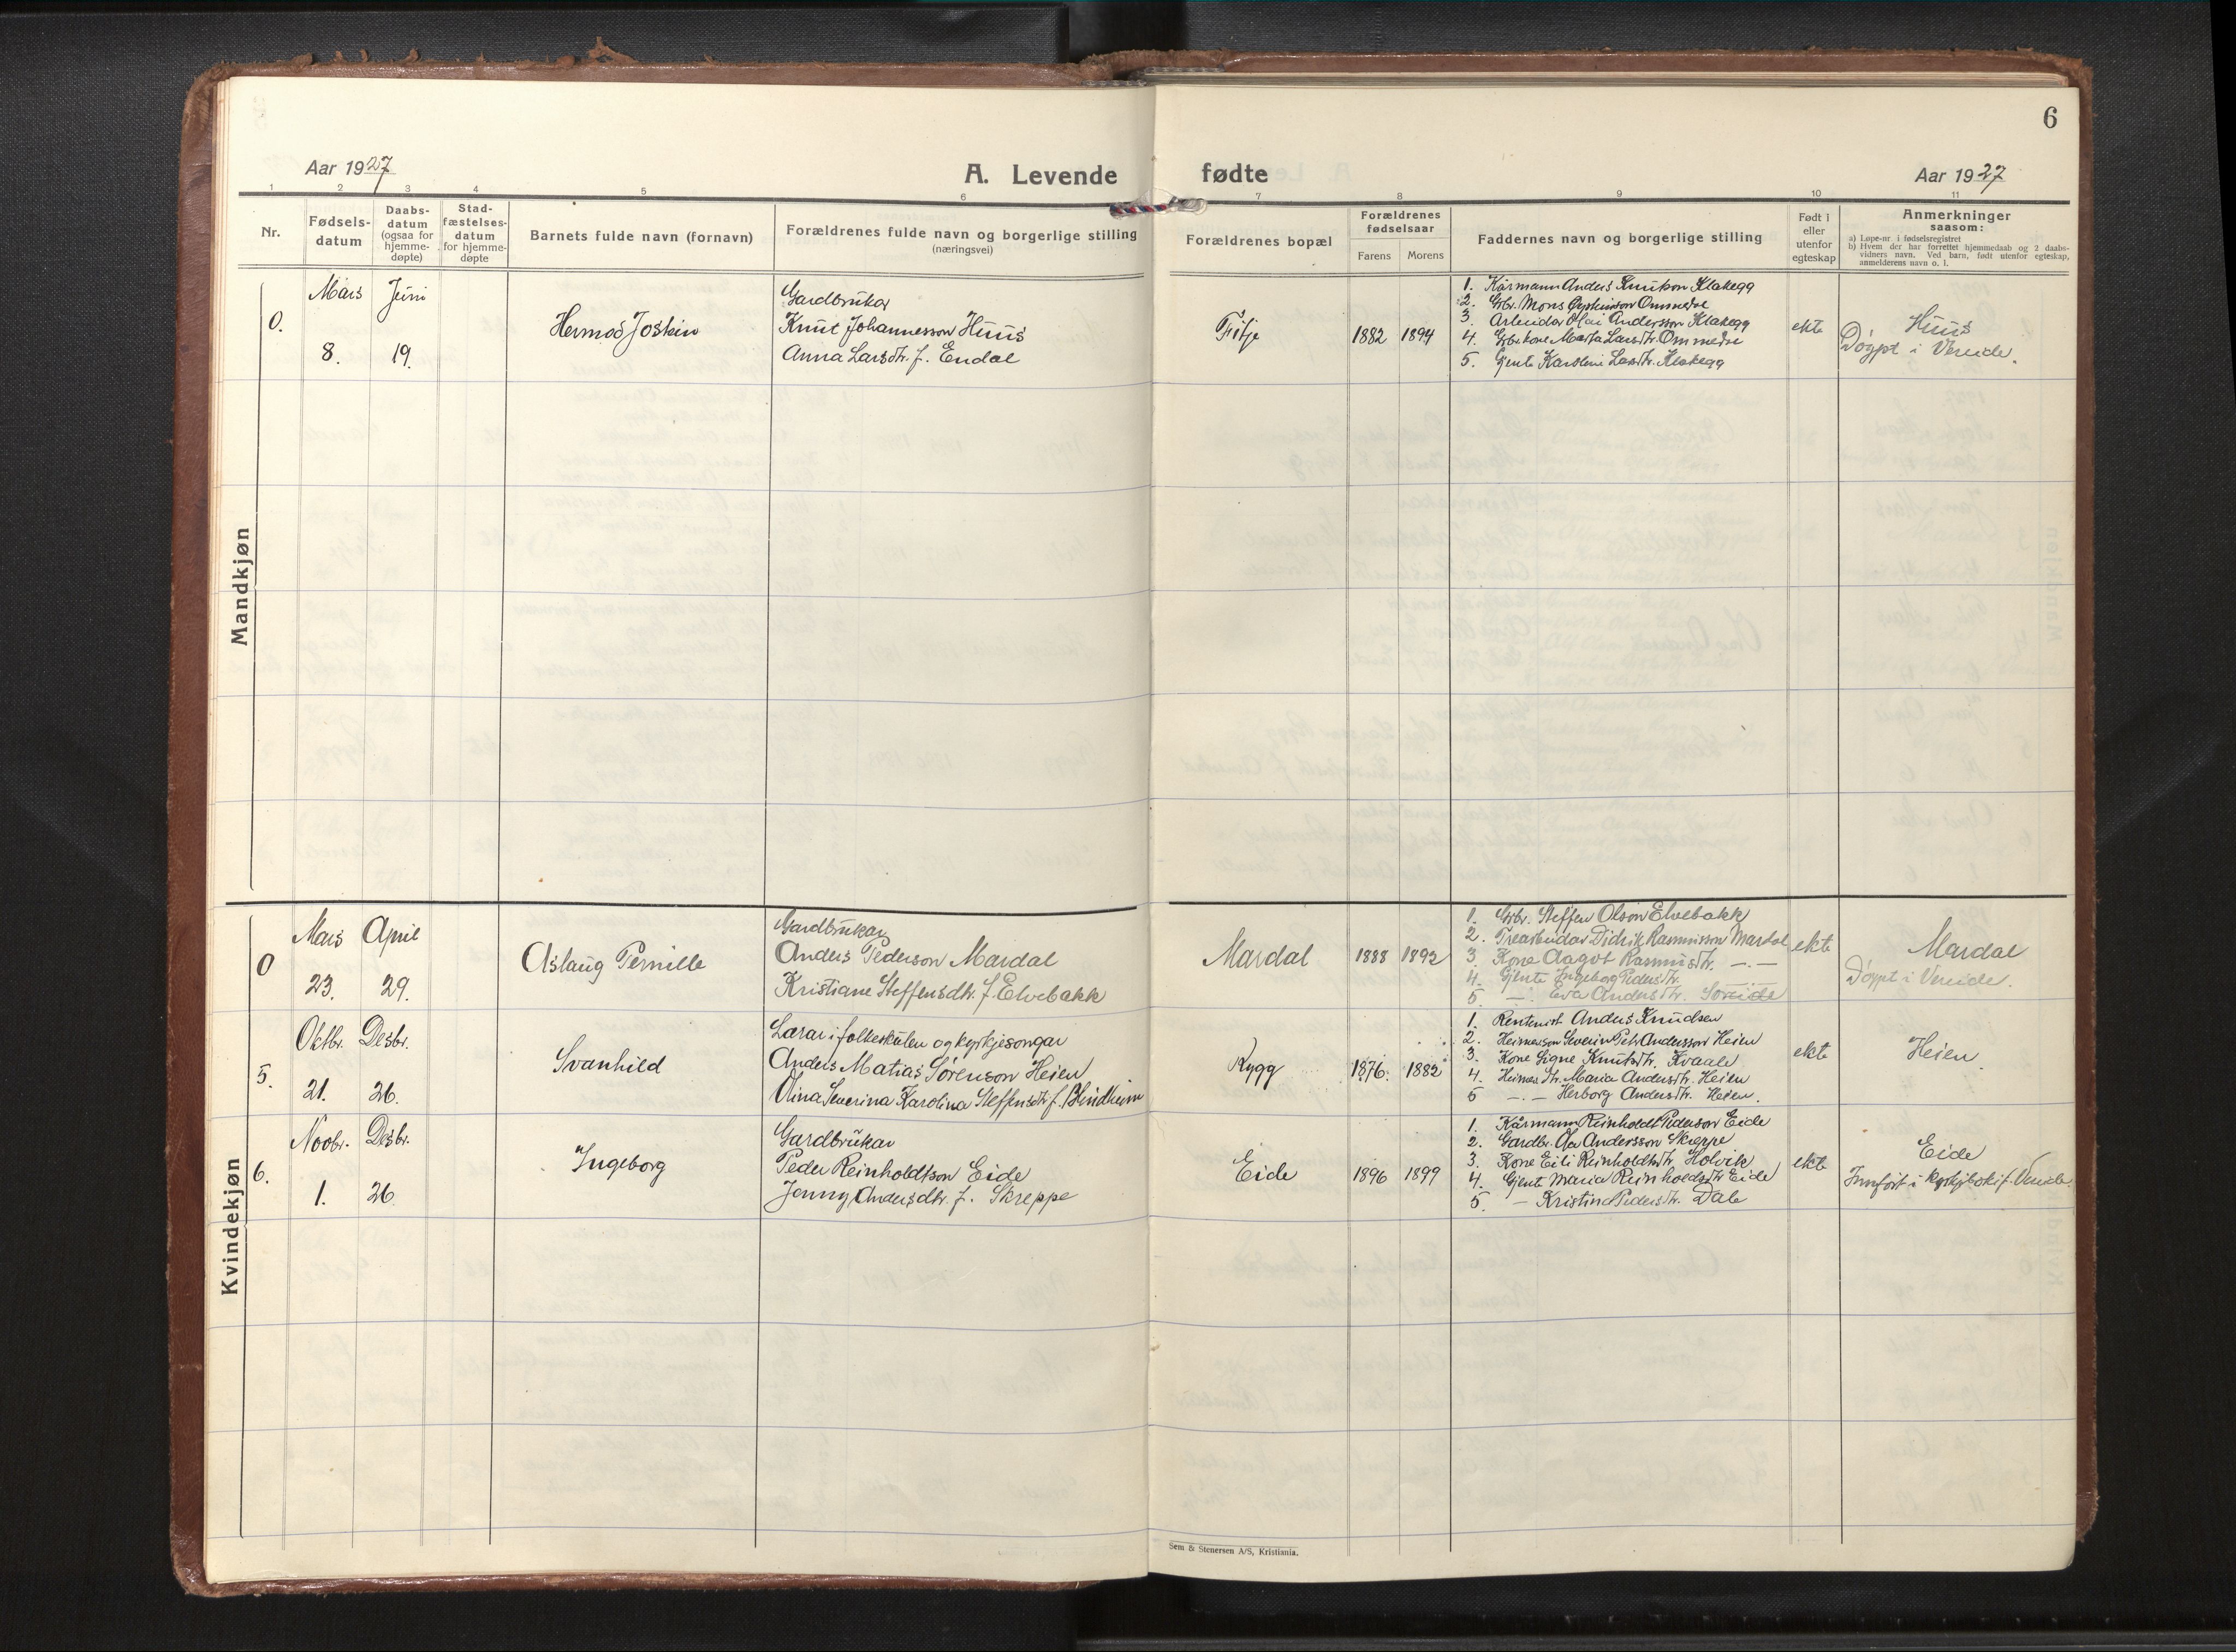 6
Aar 1927
A. Levende fødte
Aar 1927
1 2 3 4 5 6 7 8 9 10 11
Nr.
Fødsels-
datum
Daabs-
datum
(ogsaa for
hjemme-
døpte)
Stad-
fæstelses-
datum
for hjemme-
døpte
Barnets fulde navn (fornavn)
Forældrenes fulde navn og borgerlige stilling
(næringsvei)
Forældrenes bopæl
Forældrenes
fødselsaar
Farens Morens
Faddernes navn og borgerlige stilling
Født i
eller
utenfor
egteskap
Anmerkninger
saasom:
a) Løpe-nr. i fødselsregistret
b) Hvem der har forrettet hjemmedaab og 2 daabs-
vidners navn. Ved barn, født utenfor egteskap,
anmelderens navn o. l.
Mandkjøn
0.
Mars
8.
Juni
19.
Hermod Jostein
Gardbrukar
Knut Johannesson Huus
Anna Larsdtr. f. Endal
Fitje
1882 1894
1. Kårmann Anders Knutson Klakegg
2. Gbr. Mons Ommedre
3. Arbeidar Olai Andersson Klakegg
4. Gbr.kone Marta Larsdtr. Ommedre
5. Gjente Karoline Larsdtr. Klakegg
ekte
Huus
Døypt i Vereide.
Kvindekjøn
0
Mars
23.
April
29.
Aslaug Pernille
Gardbrukar
Anders Pederson Mardal
Kristiane Steffensdtr. f. Elvebakk
Mardal
1888 1892
1. Gbr. Steffen Olson Elvebakk
2. Trearbeidar Didrik Rasmusson Mardal
3. Kone Aagot Rasmusdtr. —.—
4. Gjente Ingeborg Pedersdtr.
5. —. Eva Andersdtr. Soreide
ekte
Mardal
Døypt i Vereide.
5.
Oktbr.
21.
Desbr.
26.
Svanhild
Lærar i folkeskulen og kyrkjesongar
Anders Matias Sörenson Heien
Olina Severina Karolina Steffensdtr f. Blindheim
Rygg
1876. 1882
1. Rentenist Anders Knudsen
2. Heimeson Severin Petr. Andersson Heien
3. Kone Signe Knutsdtr. Kvaale
4. Heimedtr. Maria Andersdtr. Heien
5 —.— Herborg Andersdtr. Heien.
ekte
Heien
6.
Novbr.
1.
Desbr.
26.
Ingeborg
Gardbrukar
Peder Reinholdtson Eide
Jenny Andersdtr. f. Skreppe
Eide
1896 1899
1. Kårmann Reinholdt Pederson Eide
2. Gardbr. Ola Andersson Skreppe
3. Kone Eili Reinholdtsdtr. Holvik
4. Gjent. Maria Reinholdsdtr Eide
5. — Kristina Pedersdtr. Dale
ekte
Eide
Innført i kyrkjeboki f. Vereide.
Sem & Stenersen A/S, Kristiania.